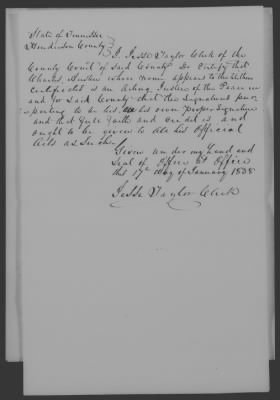 State of Tennessee
Henderson County
I Jesse Taylor Clerk of the
County Court of Said County Do certify that
Charles Austin whose name appears to the within
certificate is an Acting Justice of the Peace in
and for said County that the Signature pur
porting to be his is his own proper Signature
and that full faith and credit is and
ought to be given to all his official
Acts as Such
Given under my hand and
Seal of Office at Office
this 17th day of January 1838
Jesse Taylor Clerk